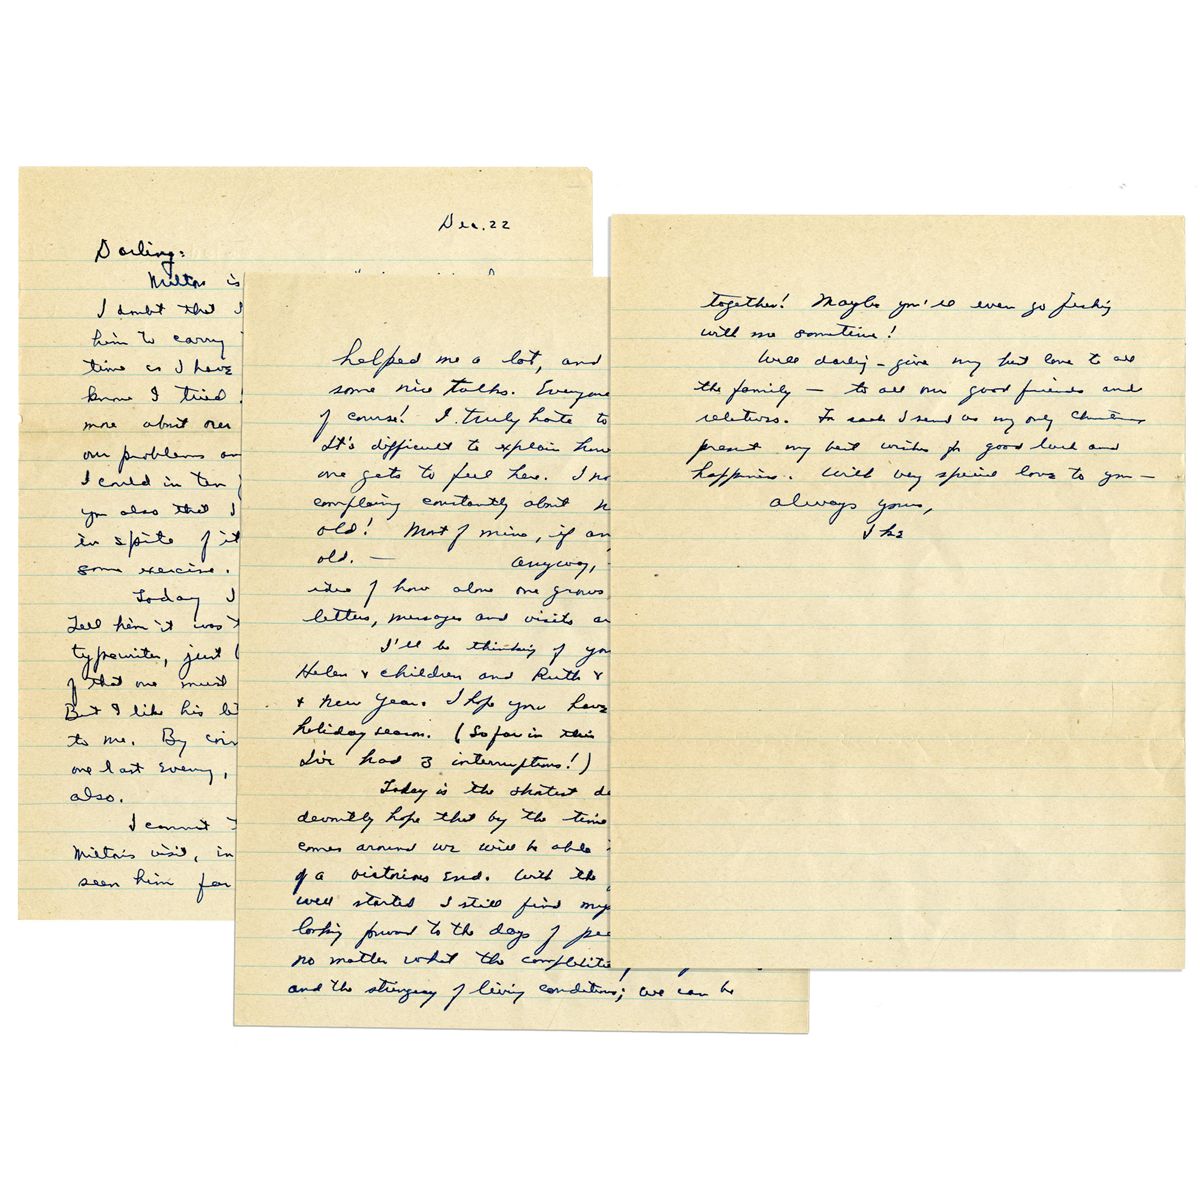 Dec. 22
Darling:
Milton is
I doubt that I
him to carry
time as I have
know I tried!
more about our
our problems an
I could in ten
you also that I
in spite of it
some exercise.
Today I
Tell him it was t
typewriter, just
of that one must
But I like his le
to me. By coin
one last evening,
also.
I cannot t
Milton's visit, in
seen him for
helped me a lot, and
some nice talks. Everyone
of course! I truly hate to
It's difficult to explain how
one gets to feel here. I no
complaining constantly about n
old! Most of mine, if an
old. — Anyway,
idea of how alone one grows
letters, messages and visits a
I'll be thinking of you
Helen & children and Ruth &
& New Year. I hope you have
holiday season. (So far in this
I've had 3 interruptions!)
Today is the shortest da
devoutly hope that by the time
comes around we will be able
of a victorious end. With the
well started I still find mys
looking forward to the days of pea
no matter what the
and the stringency of living conditions; we can be
together! Maybe you'll even go fishing
with me sometime!
Well darling - give my best love to all
the family — to all our good friends and
relatives. To each I send as my only Christmas
present my best wishes for good luck and
happiness. With very special love to you —
Always yours,
Ike